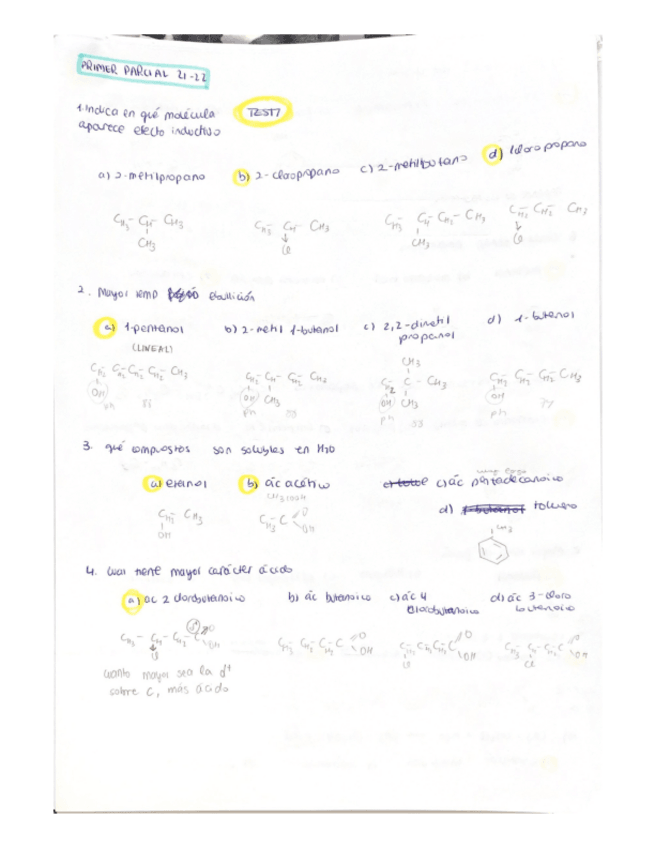 PRIMER PARCIAL 21-22
1. Indica en qué molécula
aparece efecto inductivo
TEST7
a) 2-metilpropano b) 2-cloropropano c) 2-metilbutano d) 1cloropropano
CH3- CH- CH3
CH3
CH3- CH- CH3
Cl
CH3- CH- CH2- CH3
CH3
CH2- CH2- CH3
Cl
2. Mayor temp ebullición
a) 1-pentanol b) 2-metil 1-butanol c) 2,2-dimetil d) 1-butanol
(LINEAL)
propanol
CH2- CH2- CH2- CH2- CH3
OH
CH2- CH- CH2- CH3
OH CH3
CH3
CH2- C - CH3
OH CH3
CH2- CH2- CH2- CH3
OH
3. qué compuestos son solubles en H2O
a) etanol b) ác acético c) ác pentadecanoico
CH3COOH
d) tolueno
CH2- CH3
OH
CH3- C O
OH
CH3
4. Cual tiene mayor carácter ácido
a) ac 2 clorobutanoico b) ác butanoico c) ác 4 d) ác 3-cloro
clorobutanoico butanoico
CH3- CH- CH2- C O
Cl
δ+
CH3- CH2- CH2- C O
OH
CH2- CH2- CH2- C O
Cl OH
CH3- CH- CH2- C O
Cl OH
cuanto mayor sea la δ+
sobre C, más ácido